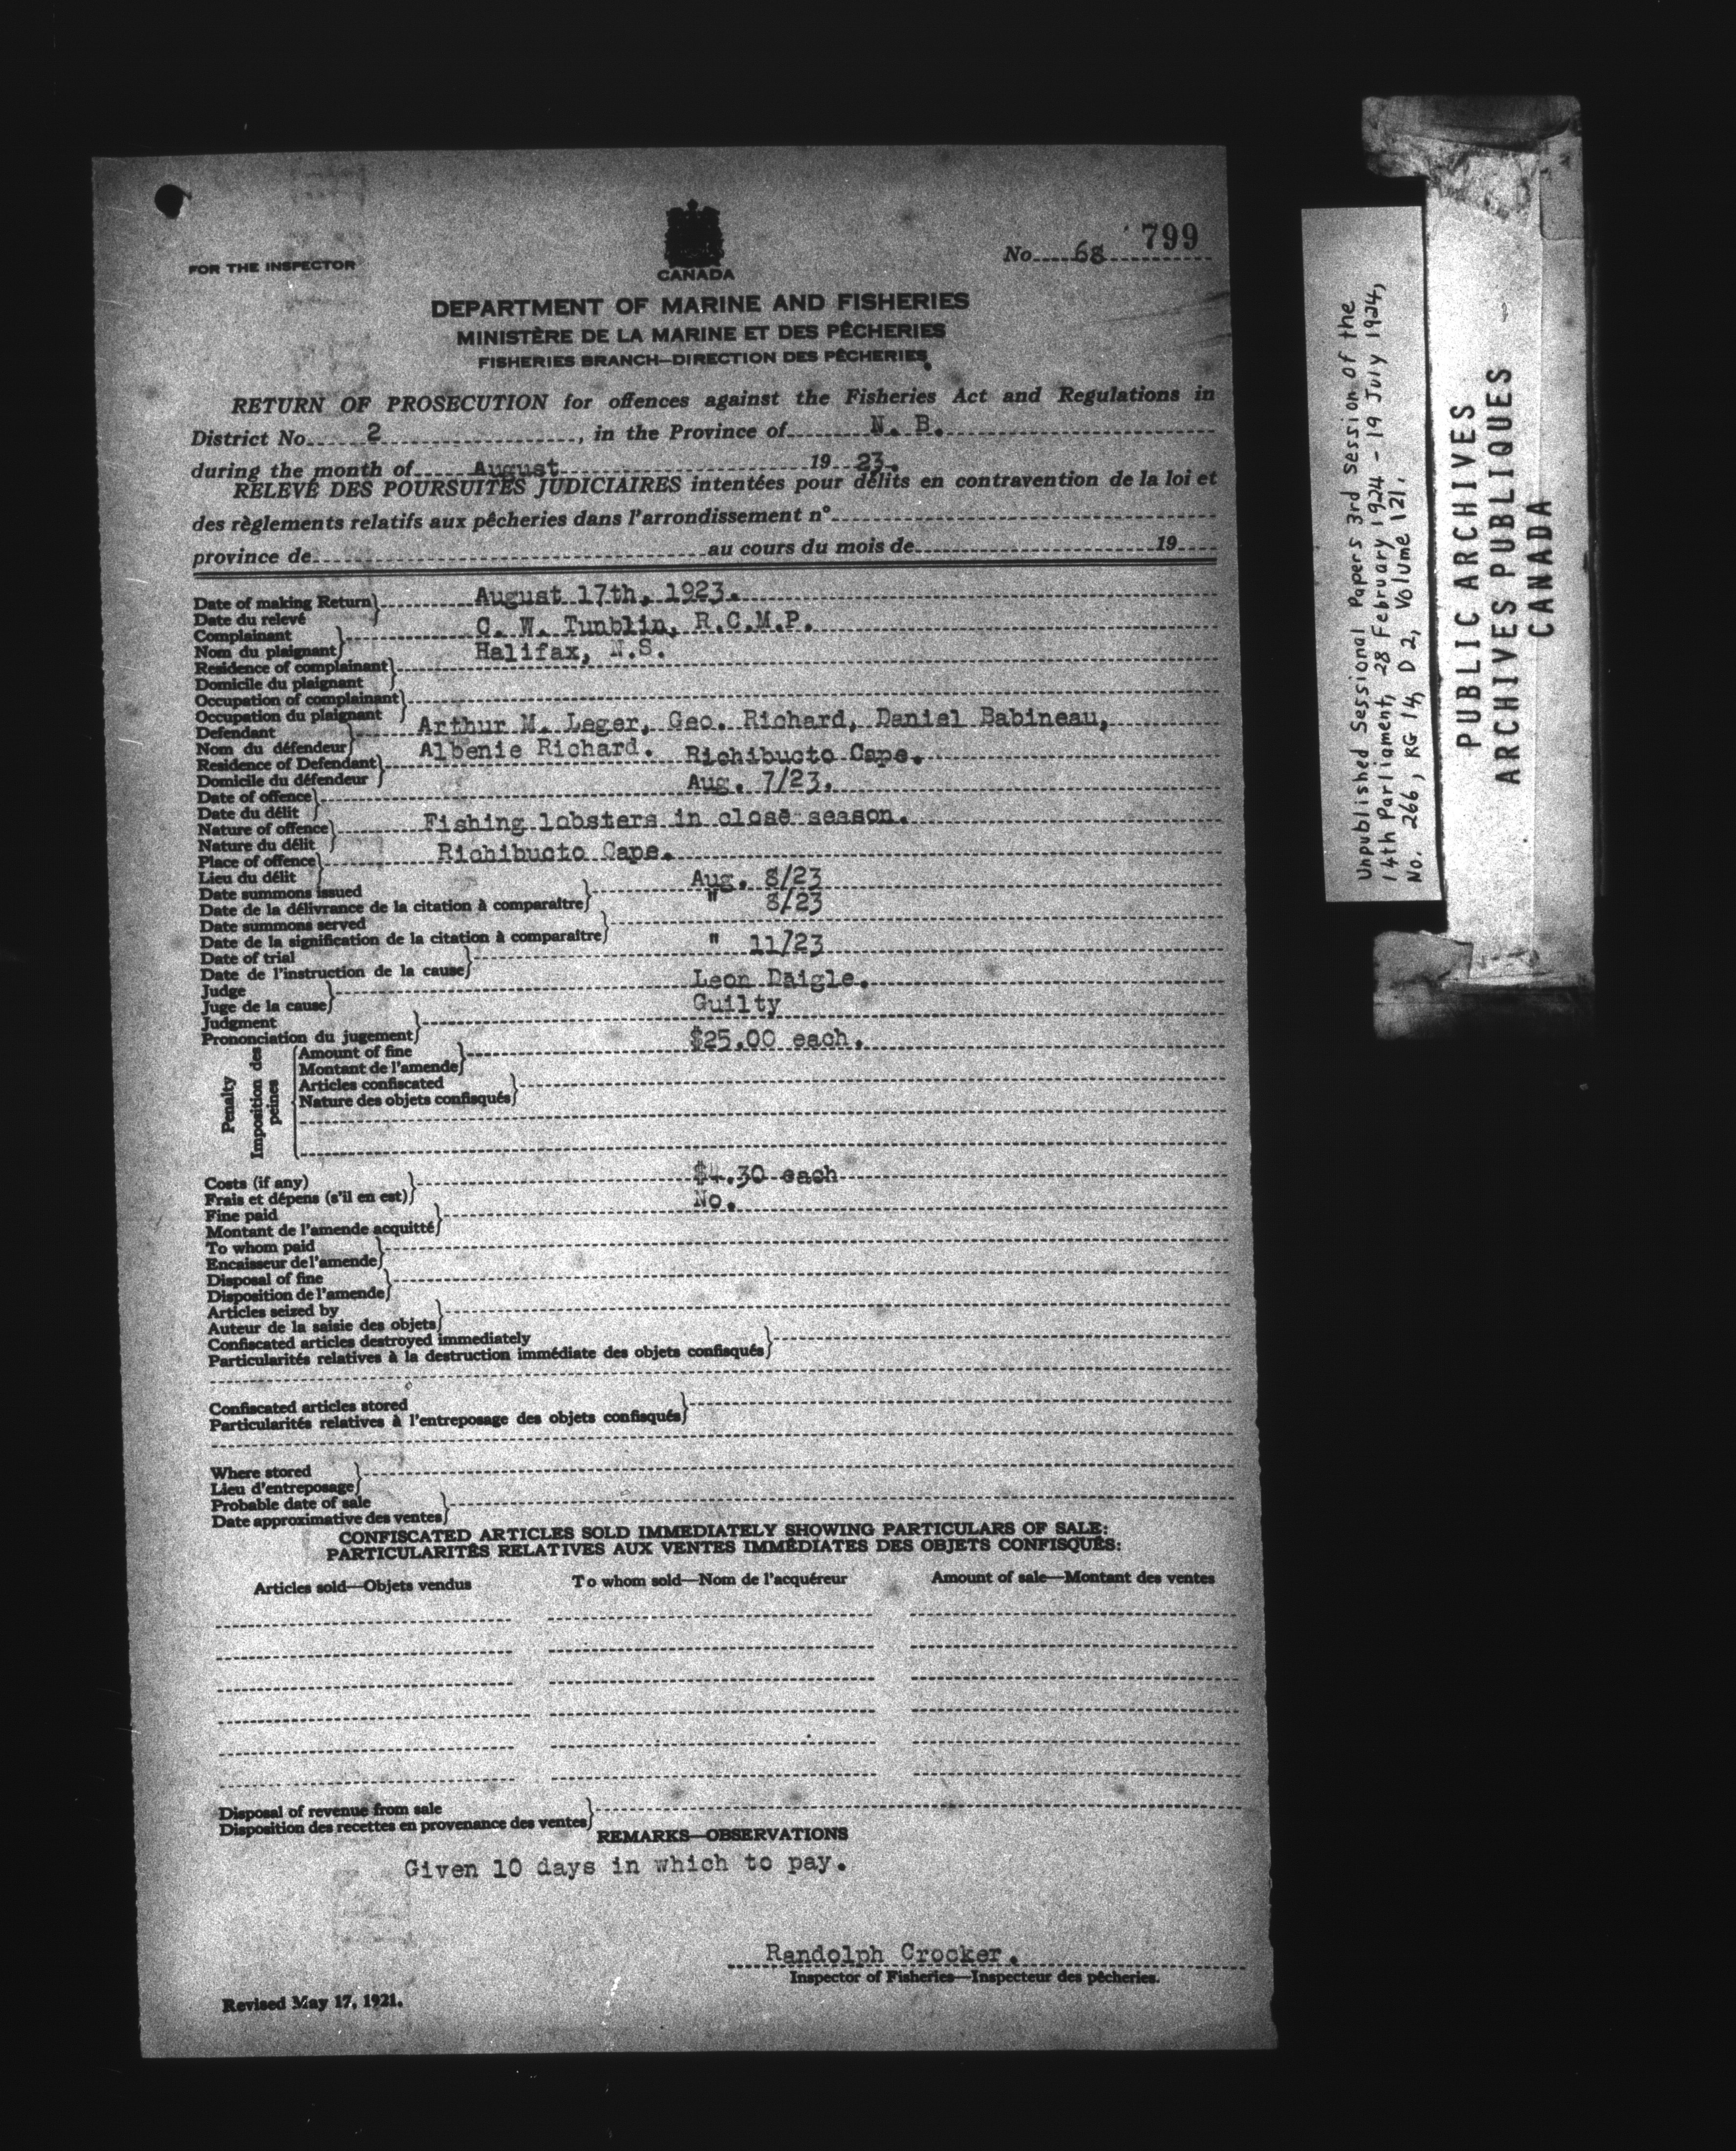 799
No 68
FOR THE INSPECTOR
CANADA
DEPARTMENT OF MARINE AND FISHERIES
MINISTÈRE DE LA MARINE ET DES PÊCHERIES
FISHERIES BRANCH—DIRECTION DES PÊCHERIES
RETURN OF PROSECUTION for offences against the Fisheries Act and Regulations in
District No. 2, in the Province of N. B.
during the month of August 19 23.
RELEVÉ DES POURSUITES JUDICIAIRES intentées pour délits en contravention de la loi et
des règlements relatifs aux pêcheries dans l'arrondissement n°
province de au cours du mois de 19
Date of making Return August 17th, 1923.
Date du relevé
Complainant C. W. Tunblin, R.C.M.P.
Nom du plaignant Halifax, N.S.
Residence of complainant
Domicile du plaignant
Occupation of complainant
Occupation du plaignant
Defendant Arthur M. Leger, Geo. Richard, Daniel Babineau,
Nom du défendeur Albenie Richard.
Residence of Defendant Richibucto Cape.
Domicile du défendeur
Date of offence Aug. 7/23.
Date du délit
Nature of offence Fishing lobsters in close season.
Nature du délit
Place of offence Richibucto Cape.
Lieu du délit
Date summons issued Aug. 8/23
Date de la délivrance de la citation à comparaître
Date summons served " 8/23
Date de la signification de la citation à comparaître
Date of trial " 11/23
Date de l'instruction de la cause
Judge Leon Daigle.
Juge de la cause
Judgment Guilty
Prononciation du jugement
Penalty
Imposition des peines
Amount of fine $25.00 each.
Montant de l'amende
Articles confiscated
Nature des objets confisqués
Costs (if any) $4.30 each
Frais et dépens (s'il en est)
Fine paid No.
Montant de l'amende acquitté
To whom paid
Encaisseur de l'amende
Disposal of fine
Disposition de l'amende
Articles seized by
Auteur de la saisie des objets
Confiscated articles destroyed immediately
Particularités relatives à la destruction immédiate des objets confisqués
Confiscated articles stored
Particularités relatives à l'entreposage des objets confisqués
Where stored
Lieu d'entreposage
Probable date of sale
Date approximative des ventes
CONFISCATED ARTICLES SOLD IMMEDIATELY SHOWING PARTICULARS OF SALE:
PARTICULARITÉS RELATIVES AUX VENTES IMMÉDIATES DES OBJETS CONFISQUÉS:
Articles sold—Objets vendus To whom sold—Nom de l'acquéreur Amount of sale—Montant des ventes
Disposal of revenue from sale
Disposition des recettes en provenance des ventes
REMARKS—OBSERVATIONS
Given 10 days in which to pay.
Randolph Crocker.
Inspector of Fisheries—Inspecteur des pêcheries.
Revised May 17, 1921.
Unpublished Sessional Papers 3rd Session of the
14th Parliament, 28 February 1924 - 19 July 1924,
No. 266, RG 14, D 2, Volume 121.
PUBLIC ARCHIVES
ARCHIVES PUBLIQUES
CANADA